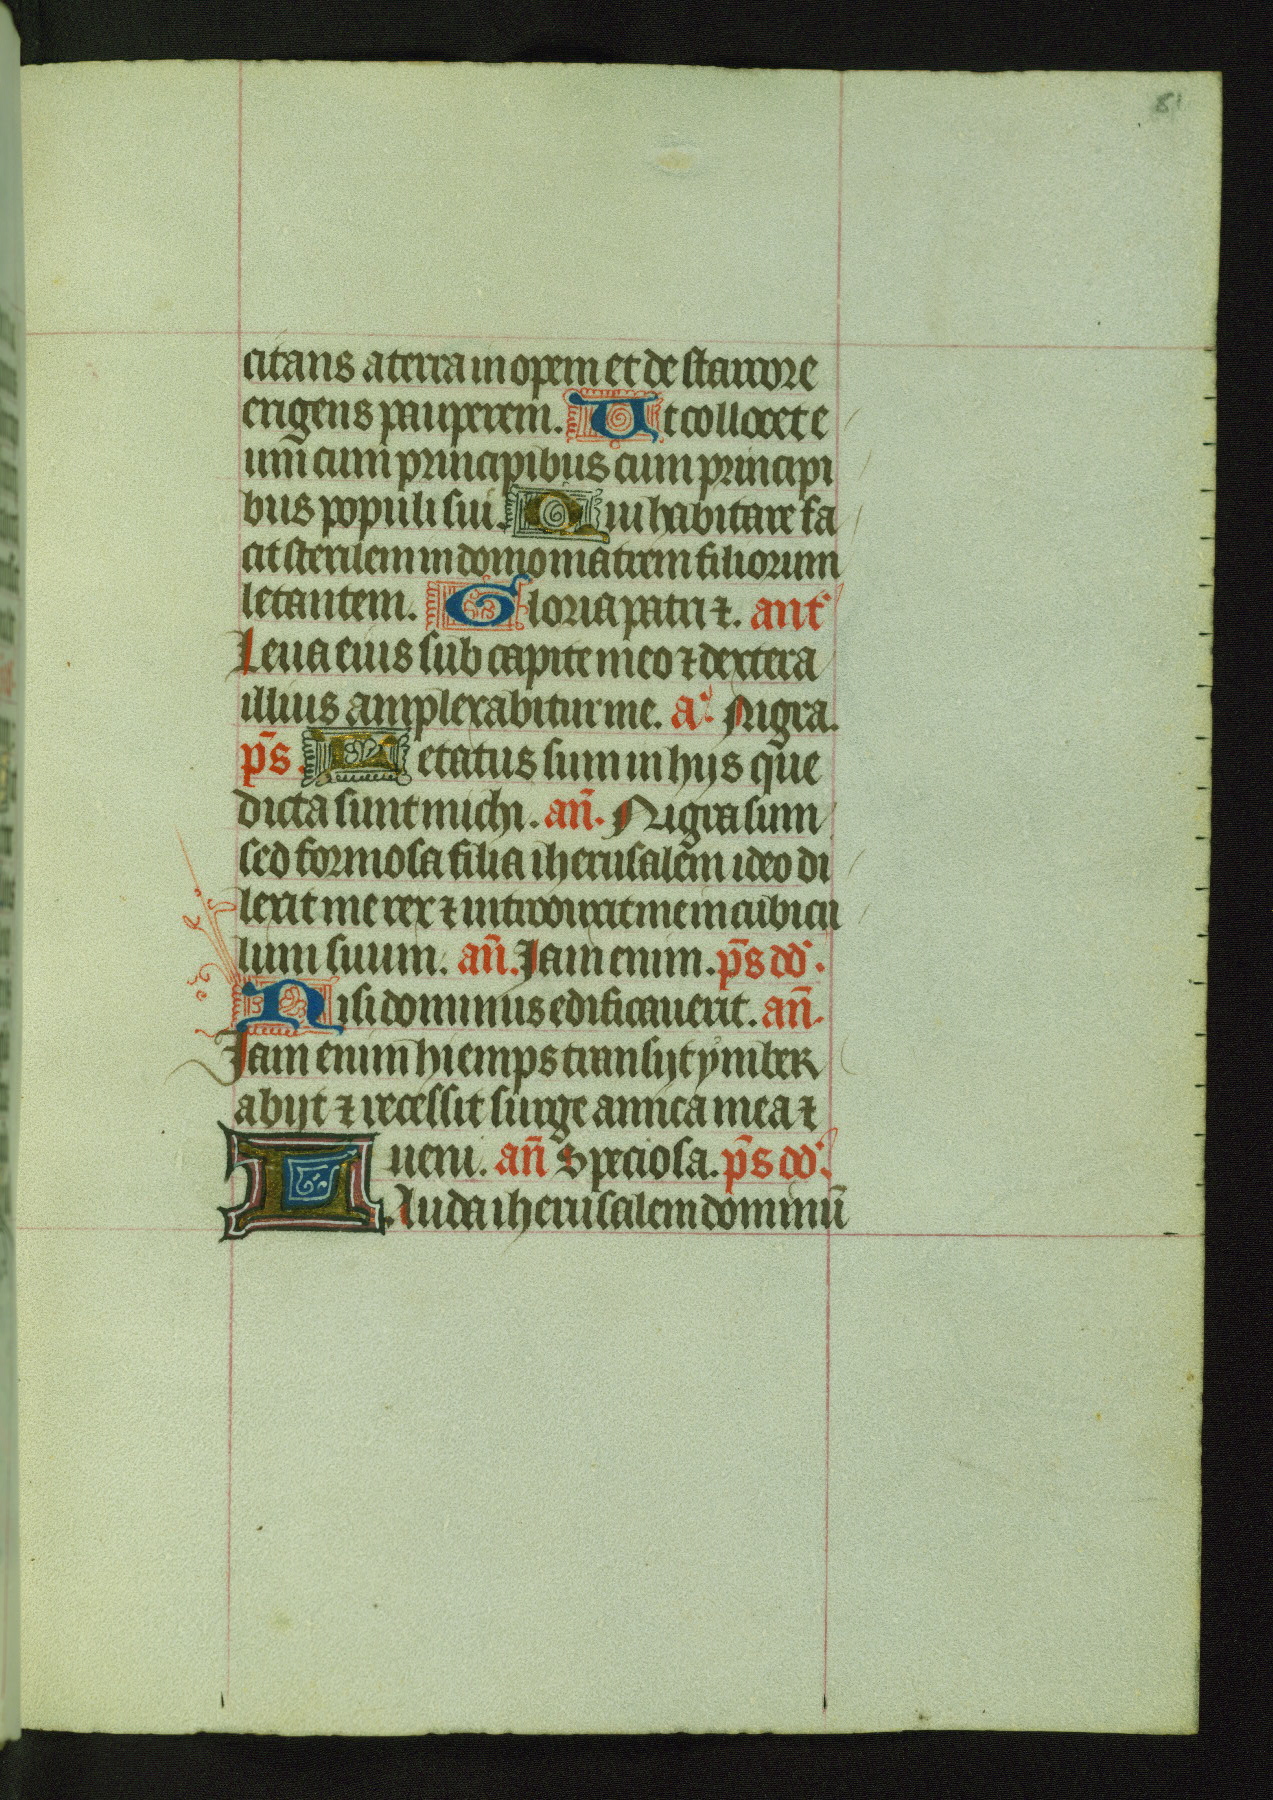 81
citans a terra inopem et de stercore
erigens pauperem. Ut collocet e
um̄ cum principibus cum principi
bus populi sui. Qui habitare fa
cit sterilem in domo matrem filiorum
letantem. Gloria patri ⁊. ant̄
Leua eius sub capite meo ⁊ dextera
illius amplexabitur me. a. Nigra.
ps̄. Letatus sum in hijs que
dicta sunt michi. an̄. Nigra sum
sed formosa filia iherusalem̄ ideo di
lexit me rex ⁊ introduxit me in cubicu
lum suum. an̄. Jam enim. ps̄ dd.
Nisi dominus edificauerit. an̄.
Jam enim hiemps transijt ymber
abijt ⁊ recessit surge amica mea ⁊
ueni. an̄ Speciosa. ps̄ dd.
Lauda iherusalem dominū